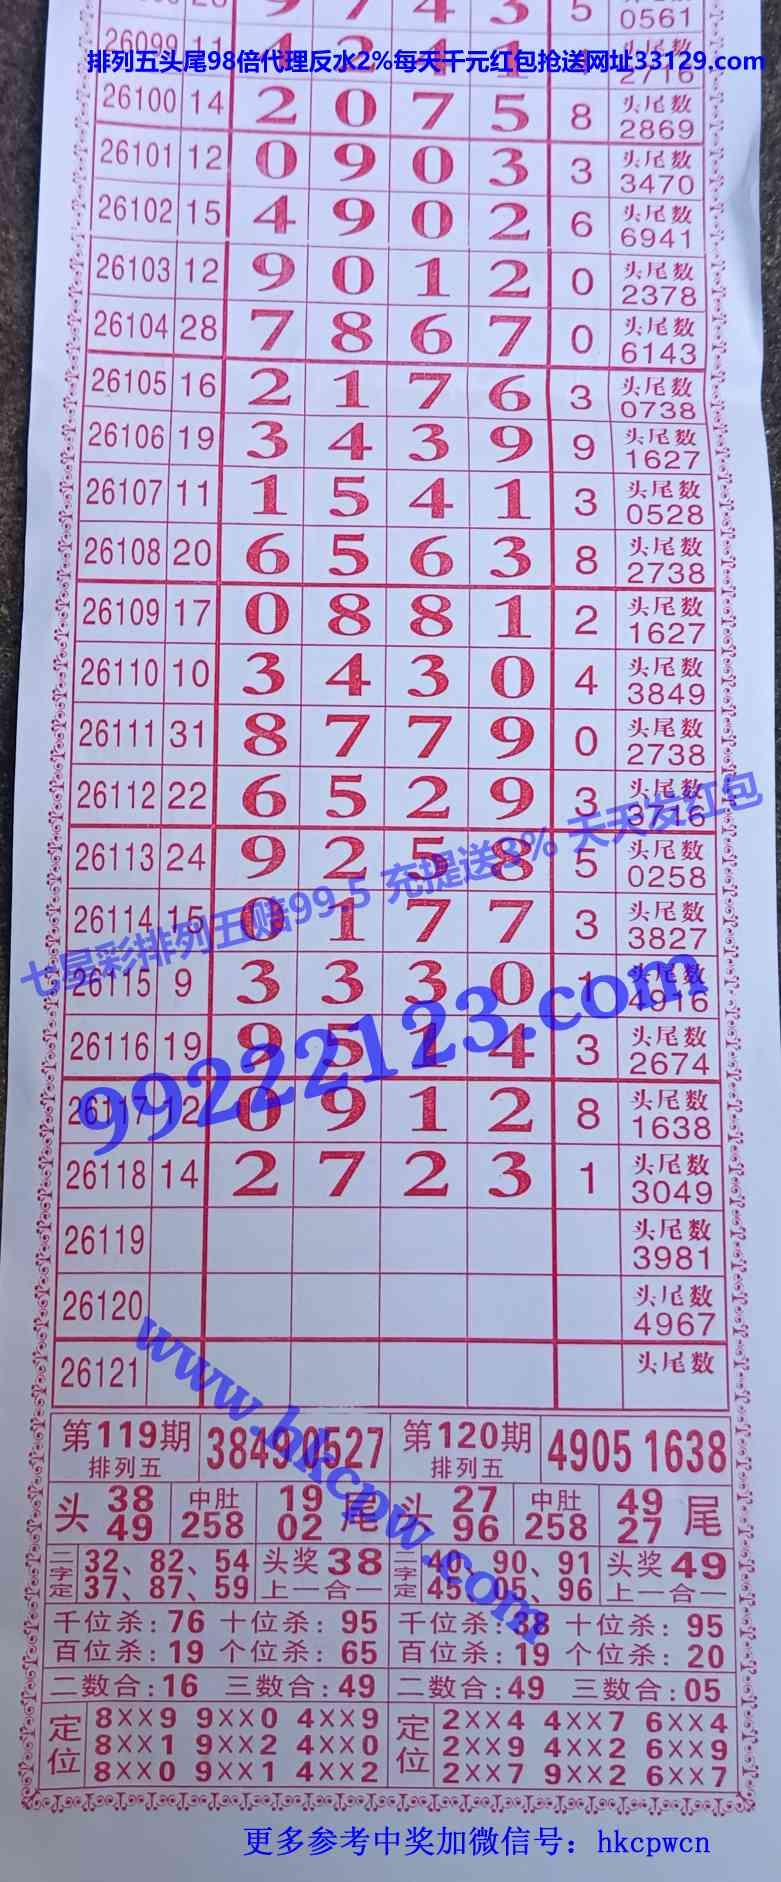 0561
排列五头尾98倍代理反水2%每天千元红包抢送网址33129.com
26099 11 4 2 4 1 4 2716
26100 14 2 0 7 5 8 头尾数 2869
26101 12 0 9 0 3 3 头尾数 3470
26102 15 4 9 0 2 6 头尾数 6941
26103 12 9 0 1 2 0 头尾数 2378
26104 28 7 8 6 7 0 头尾数 6143
26105 16 2 1 7 6 3 头尾数 0738
26106 19 3 4 3 9 9 头尾数 1627
26107 11 1 5 4 1 3 头尾数 0528
26108 20 6 5 6 3 8 头尾数 2738
26109 17 0 8 8 1 2 头尾数 1627
26110 10 3 4 3 0 4 头尾数 3849
26111 31 8 7 7 9 0 头尾数 2738
26112 22 6 5 2 9 3 头尾数 3716
26113 24 9 2 5 8 5 头尾数 0258
七星彩排列五赔99.5 充提送3% 天天发红包
26114 15 0 1 7 7 3 头尾数 3827
26115 9 3 3 3 0 1 头尾数 4916
26116 19 9 5 1 4 3 头尾数 2674
99222123.com
26117 12 0 9 1 2 8 头尾数 1638
26118 14 2 7 2 3 1 头尾数 3049
26119 头尾数 3981
26120 头尾数 4967
26121 头尾数
www.hkcpw.com
第119期 排列五 38490527 第120期 排列五 4905 1638
头 38 49 中肚 258 19 02 尾 头 27 96 中肚 258 49 27 尾
二字定 32、82、54 37、87、59 头奖38 上一合一 二字定 40、90、91 45、05、96 头奖49 上一合一
千位杀:76 十位杀:95 千位杀:38 十位杀:95
百位杀:19 个位杀:65 百位杀:19 个位杀:20
二数合:16 三数合:49 二数合:49 三数合:05
定位 8××9 9××0 4××9 定位 2××4 4××7 6××4
8××1 9××2 4××0 2××9 4××2 6××9
8××0 9××1 4××2 2××7 9××2 6××7
更多参考中奖加微信号：hkcpwcn